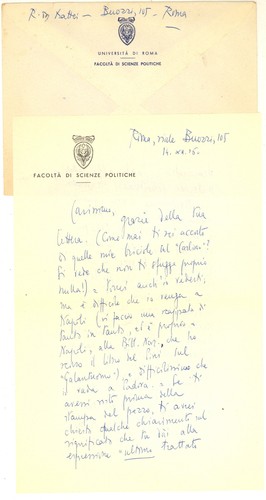 R. De Mattei - Buozzi, 105 - Roma
UNIVERSITÀ DI ROMA
FACOLTÀ DI SCIENZE POLITICHE
Roma, viale Buozzi, 105
FACOLTÀ DI SCIENZE POLITICHE
Carissimo,
grazie della tua
lettera. (Come mai ti sei accorto
di quelle mie briciole sul
Si vede che non ti sfugge proprio
nulla!). Vorrei anch'io vederti;
ma è difficile che io venga a
Napoli (vi faccio una scappata di
tanto in tanto, ed è proprio a
Napoli, alla Bibl. Naz., che ho
il libro del Pini sul
"Galantuomo"). Difficilissimo che
vada a Padova. Se ti
avessi visto prima della
stampa del pezzo, ti avrei
chiesto qualche chiarimento sul
significato che tu dai alla
espressione ultimo trattato